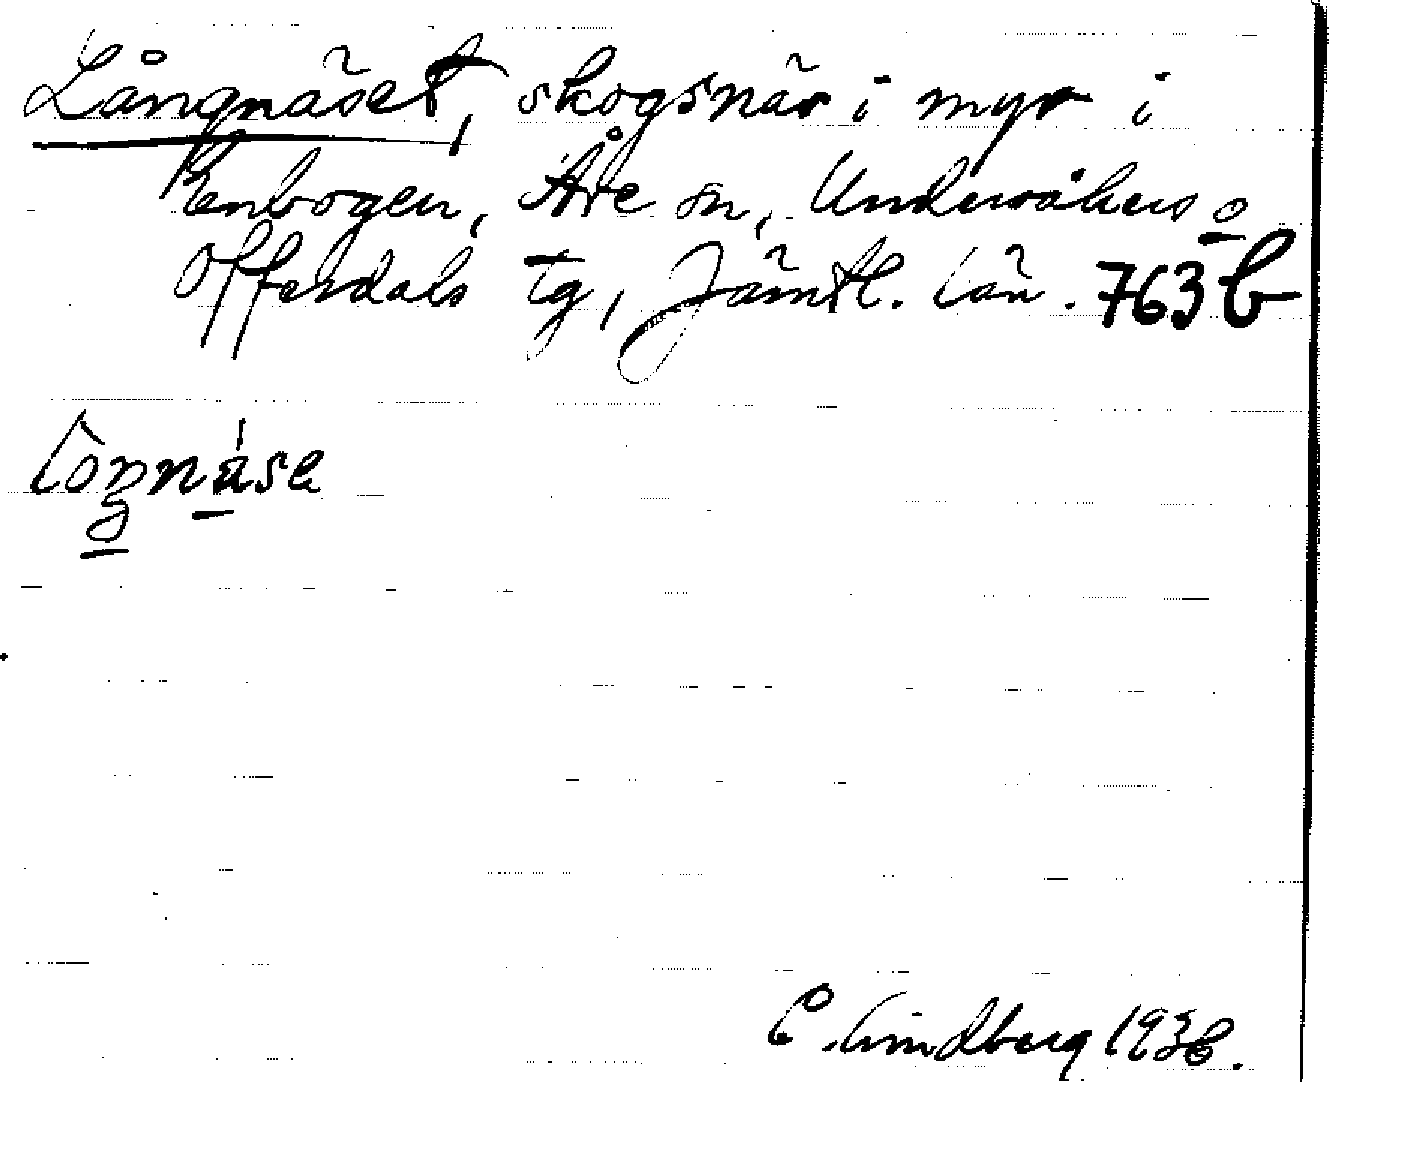 Långnäset, skogsnäs i myr i
Renbogen, Åre sn, Undersåkers o
Offerdals tg, Jämtl. län. 763b
Loŋnása
C. Lindberg 1936.